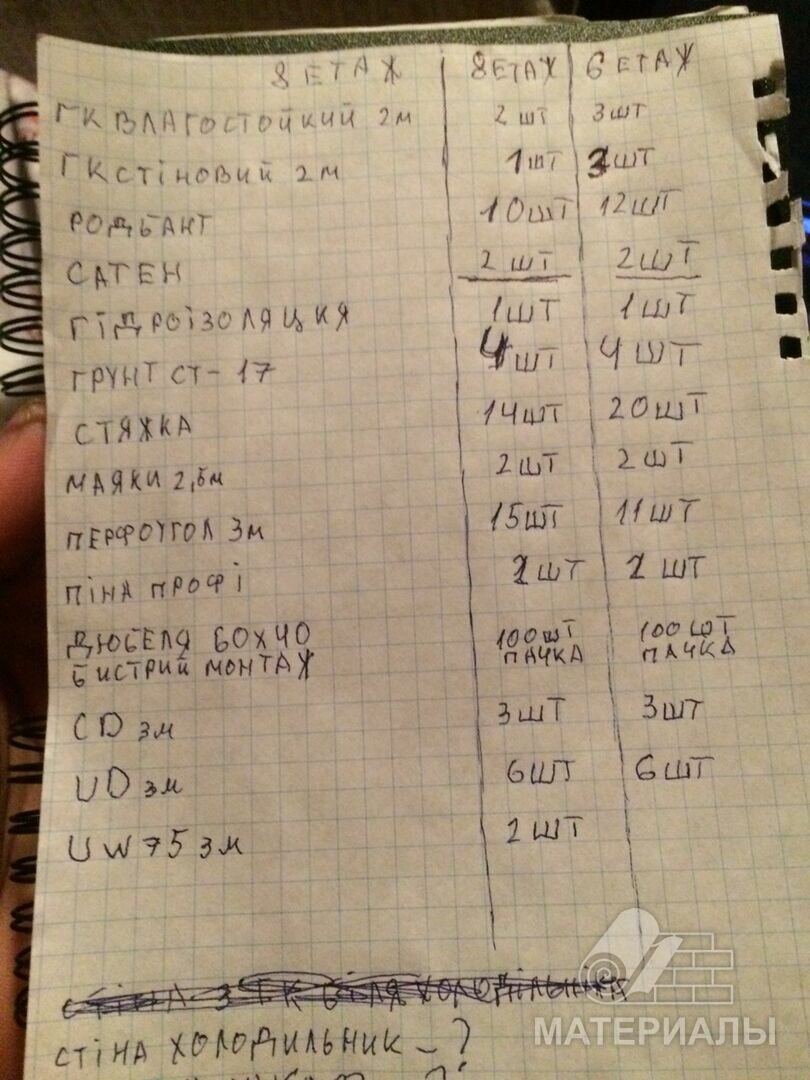 8 ЕТАЖ 8ЕТАЖ 6 ЕТАЖ
ГК ВЛАГОСТОЙКИЙ 2м 2 шт 3 шт
ГК СТІНОВИЙ 2м 1 шт шт
РОДБАНТ 10шт 12шт
САТЕН 2 шт 2шт
ГІДРОІЗОЛЯЦИЯ 1шт 1шт
ГРУНТ СТ-17 4шт 4 шт
СТЯЖКА 14шт 20шт
МАЯКИ 2,5м 2шт 2 шт
ПЕРФОУГОЛ 3м 15шт 11шт
ПІНА ПРОФІ шт шт
ДЮБЕЛЯ 60х40 100шт 100 шт
БИСТРИЙ МОНТАЖ ПАЧКА ПАЧКА
CD 3м 3шт 3шт
UD 3м 6шт 6шт
UW 75 3м 2шт
СТІНА ХОЛОДИЛЬНИК - ?
МАТЕРИАЛЫ